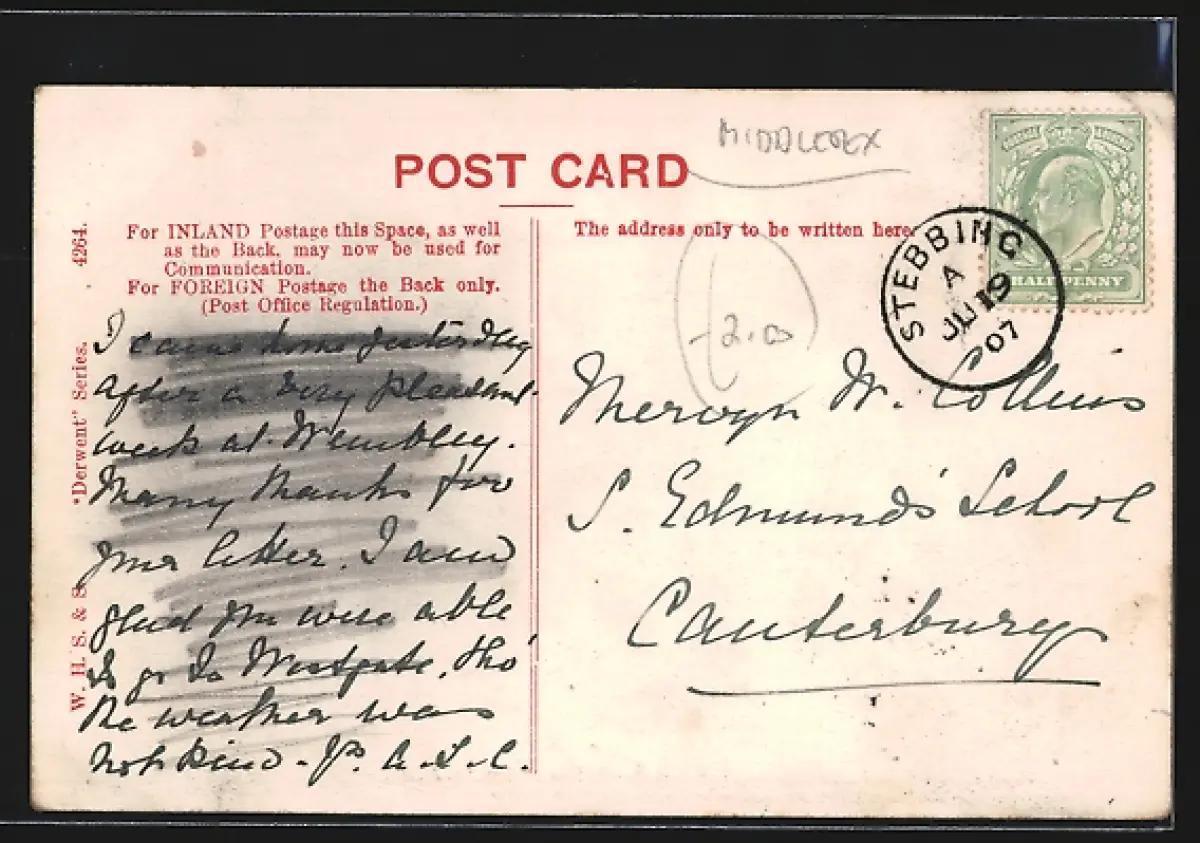 MIDDLESEX
POST CARD
For INLAND Postage this Space, as well
as the Back, may now be used for
Communication.
For FOREIGN Postage the Back only.
(Post Office Regulation.)
The address only to be written here.
4264.
"Derwent" Series.
W. H. S. & S.
HALFPENNY
STEBBING
A
JU 19
07
I came home yesterday
after a very pleasant
week at Wembley.
Many thanks for
your letter. I am
glad you were able
to go to Westgate, tho'
the weather was
not kind. Yr. A. L. C.
2.00
Mervyn W. Collins
S. Edmund's School
Canterbury